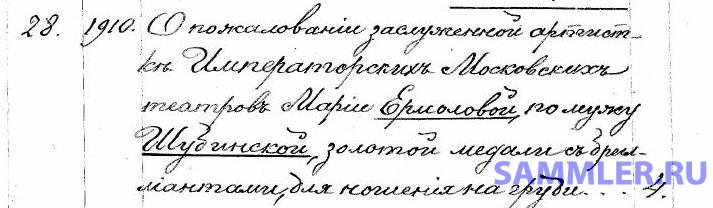 28. 1910. О пожалованіи заслуженной артист-
кѣ Императорскихъ Московскихъ
театровъ Маріи Ермоловой, по мужу
Шубинской, золотой медали съ брил-
ліантами, для ношенія на груди . . . . 4.
SAMMLER.RU